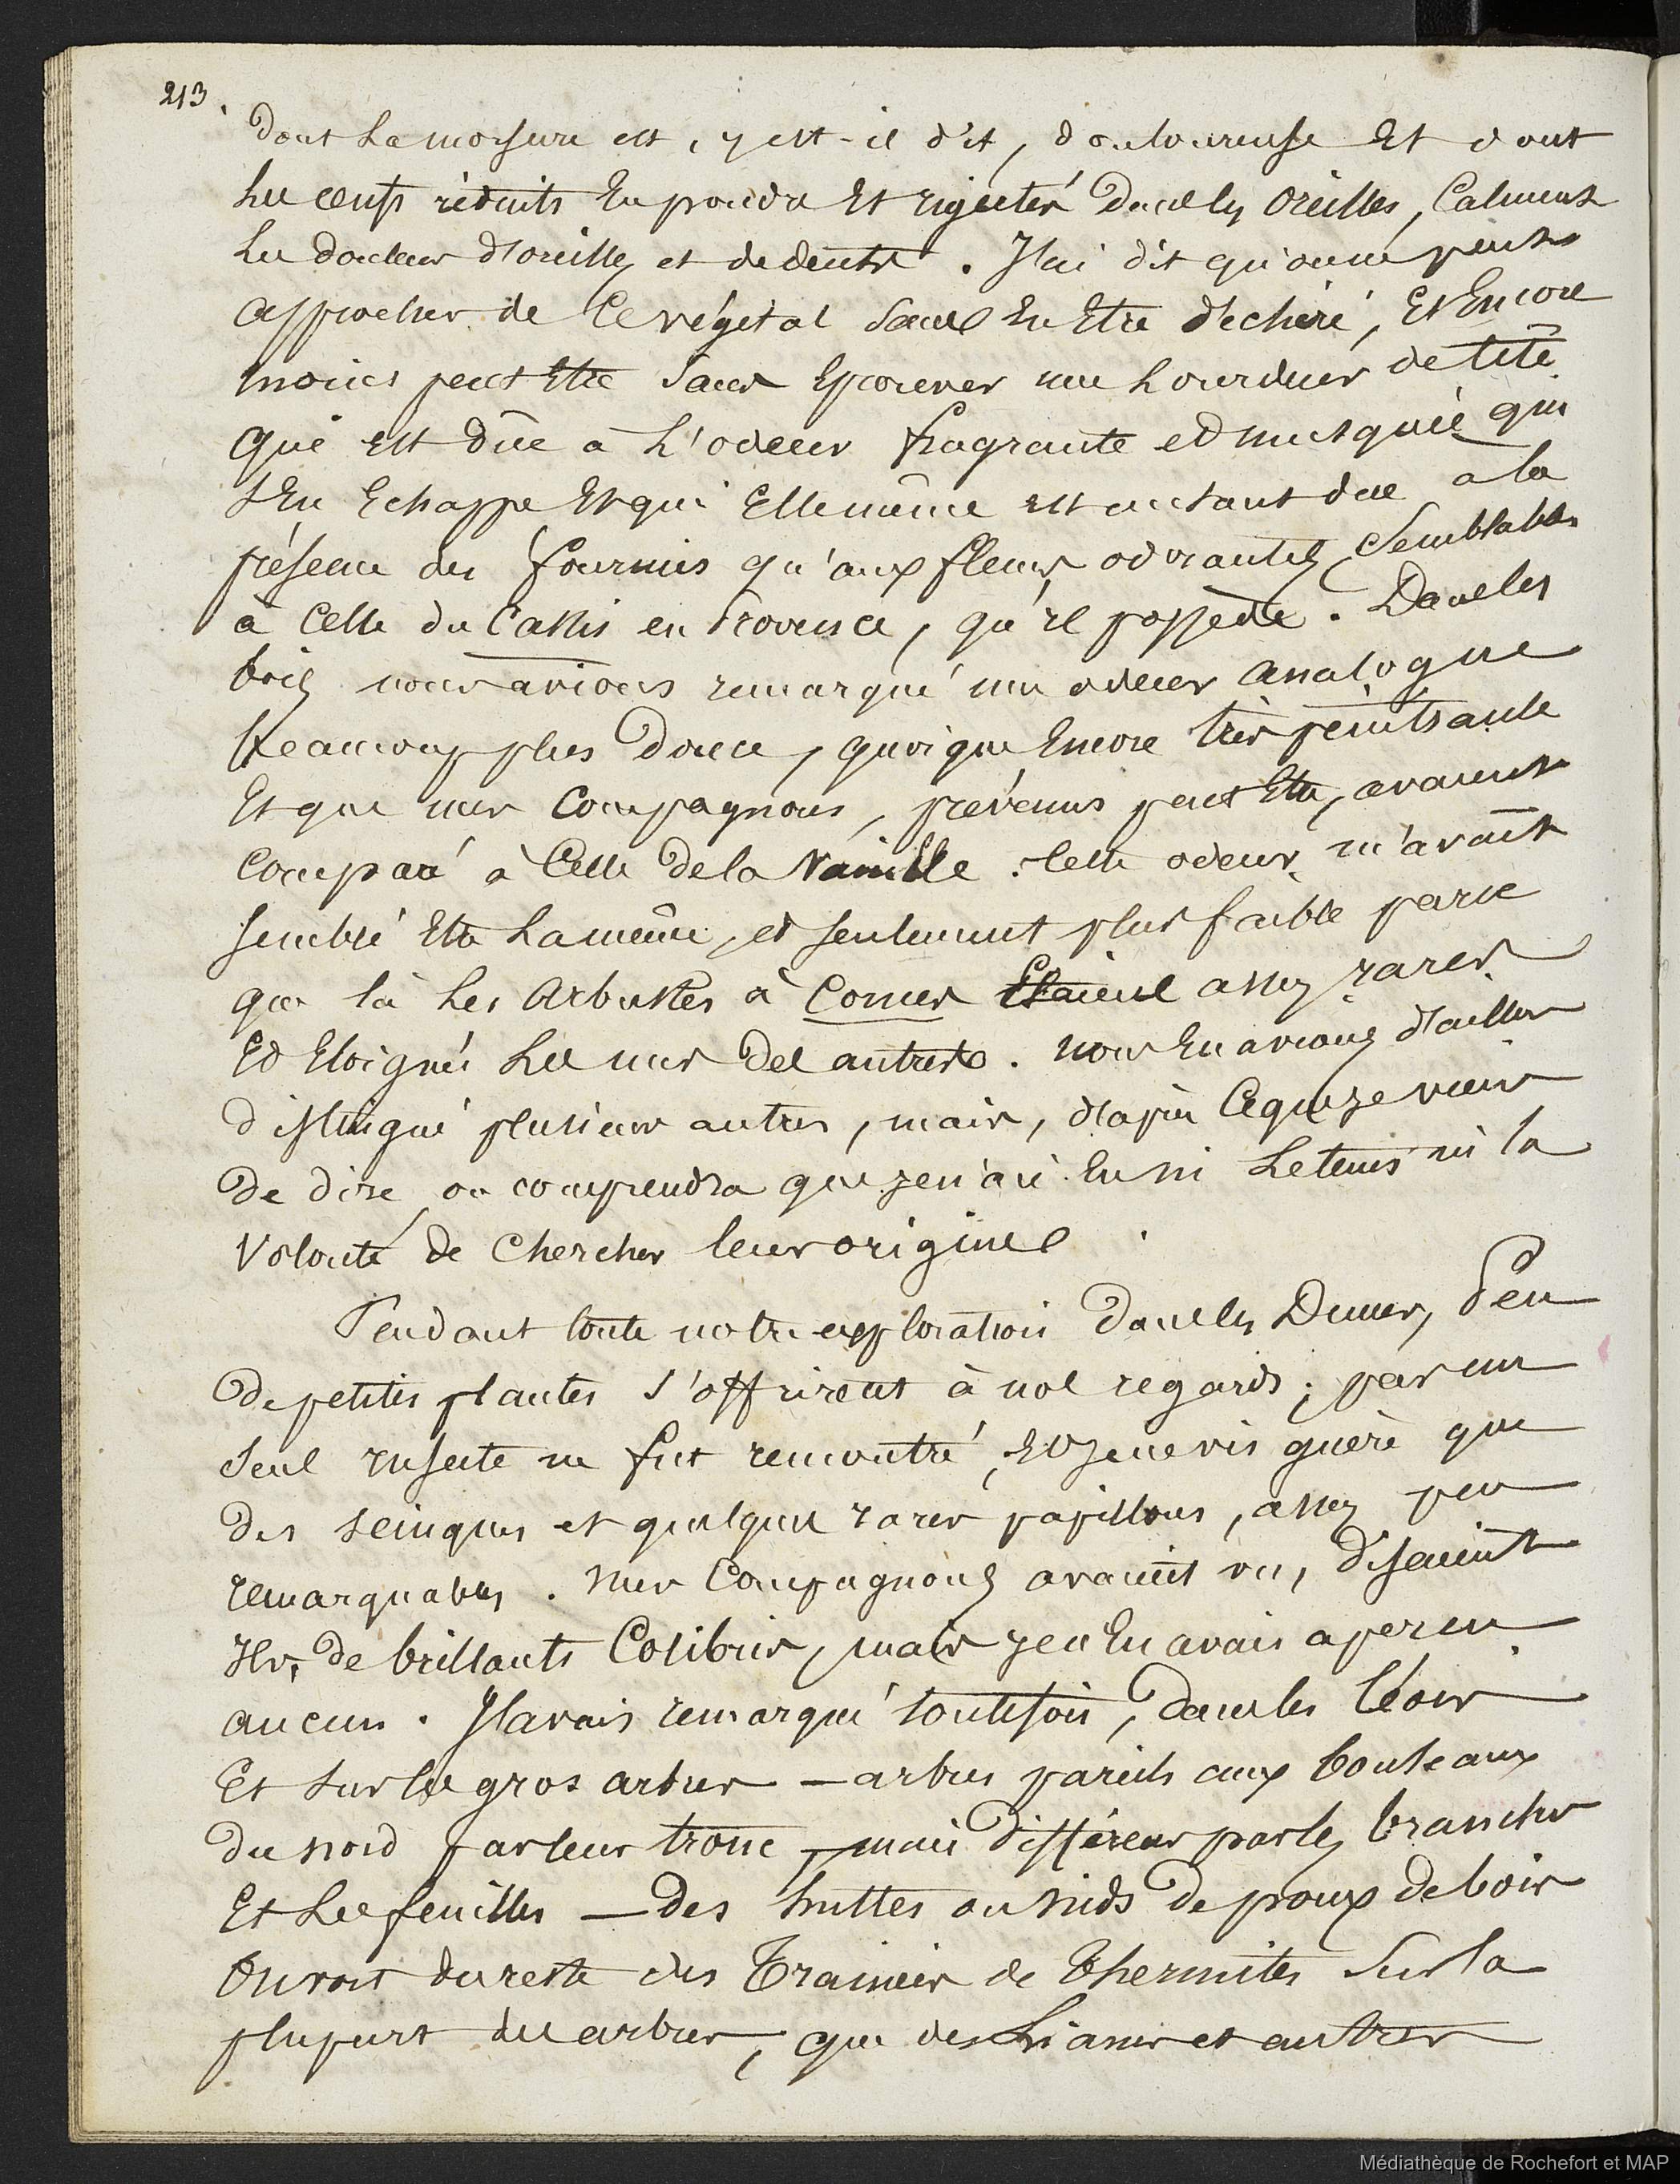 213.
dont La morsure est, y est-il dit, douloureuse Et dont
Les œufs réduits En poudre Et injectés Dans les Oreilles, Calment
Les douleurs d'oreilles et de dents. J'ai dit qu'on ne peut
approcher de Ce végétal Sans En Etre déchiré, Et Encore
moins peut Etre Sans Eprouver une Lourdeur de tête
qui est dûe à L'odeur fragrante et musquée qui
s'En Echappe Et qui Elle même est autant due à la
présence des fourmis qu'aux fleurs odorantes, Semblables
à Celle du Cassis en Provence, qu'il possède. Dans les
bois nous avions remarqué une odeur analogue
Beaucoup plus Douce, quoique Encore très pénétrante
Et que mes Compagnons, prévenus peut Etre, avaient
Comparé à Celle de la Vanille. Cette odeur m'avait
semblé Etre La même, et seulement plus faible parce
que là Les Arbustes à Cornes Etaient assez rares
Et Eloignés Les uns Des autres. Nous En avions d'ailleurs
distingué plusieurs autres, mais, d'après Ce que je viens
De dire on comprendra que je n'ai Eu ni Le tems ni la
Volonté de Chercher leur origine
Pendant toute notre exploration Dans les Dunes, Peu
De petites plantes s'offrirent à nos regards; pas un
Seul Insecte ne fut rencontré, Et je ne vis guère que
des scinques et quelques rares papillons, assez peu
remarquables. Mes Compagnons avaient vu, disaient
Ils, de brillants Colibris, mais je n'En avais aperçu
aucun. J'avais remarqué toutefois, Dans les bois
Et Sur les gros arbres — arbres pareils aux bouleaux
du nord par leur tronc, mais différens par les branches
Et Les feuilles — Des huttes ou nids de poux de bois
On voit du reste des Trainées de Thermites Sur la
plupart des arbres, que des Lianes et autres
Médiathèque de Rochefort et MAP